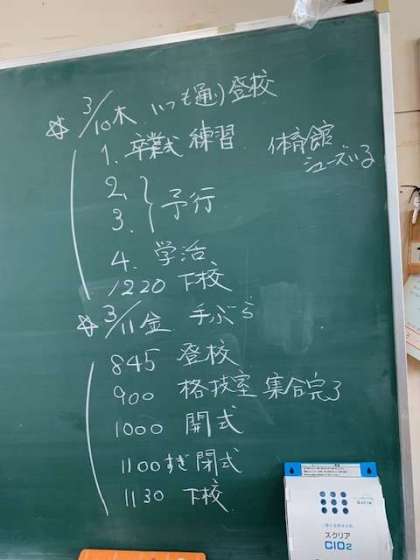 ☆ 3/10木 いつも通り登校
1. 卒業式 練習 体育館
シューズいる
2.
3. } 予行
4. 学活
1220 下校
☆ 3/11金 手ぶら
845 登校
900 格技室 集合完了
1000 開式
1100すぎ 閉式
1130 下校
スクリア
ClO2